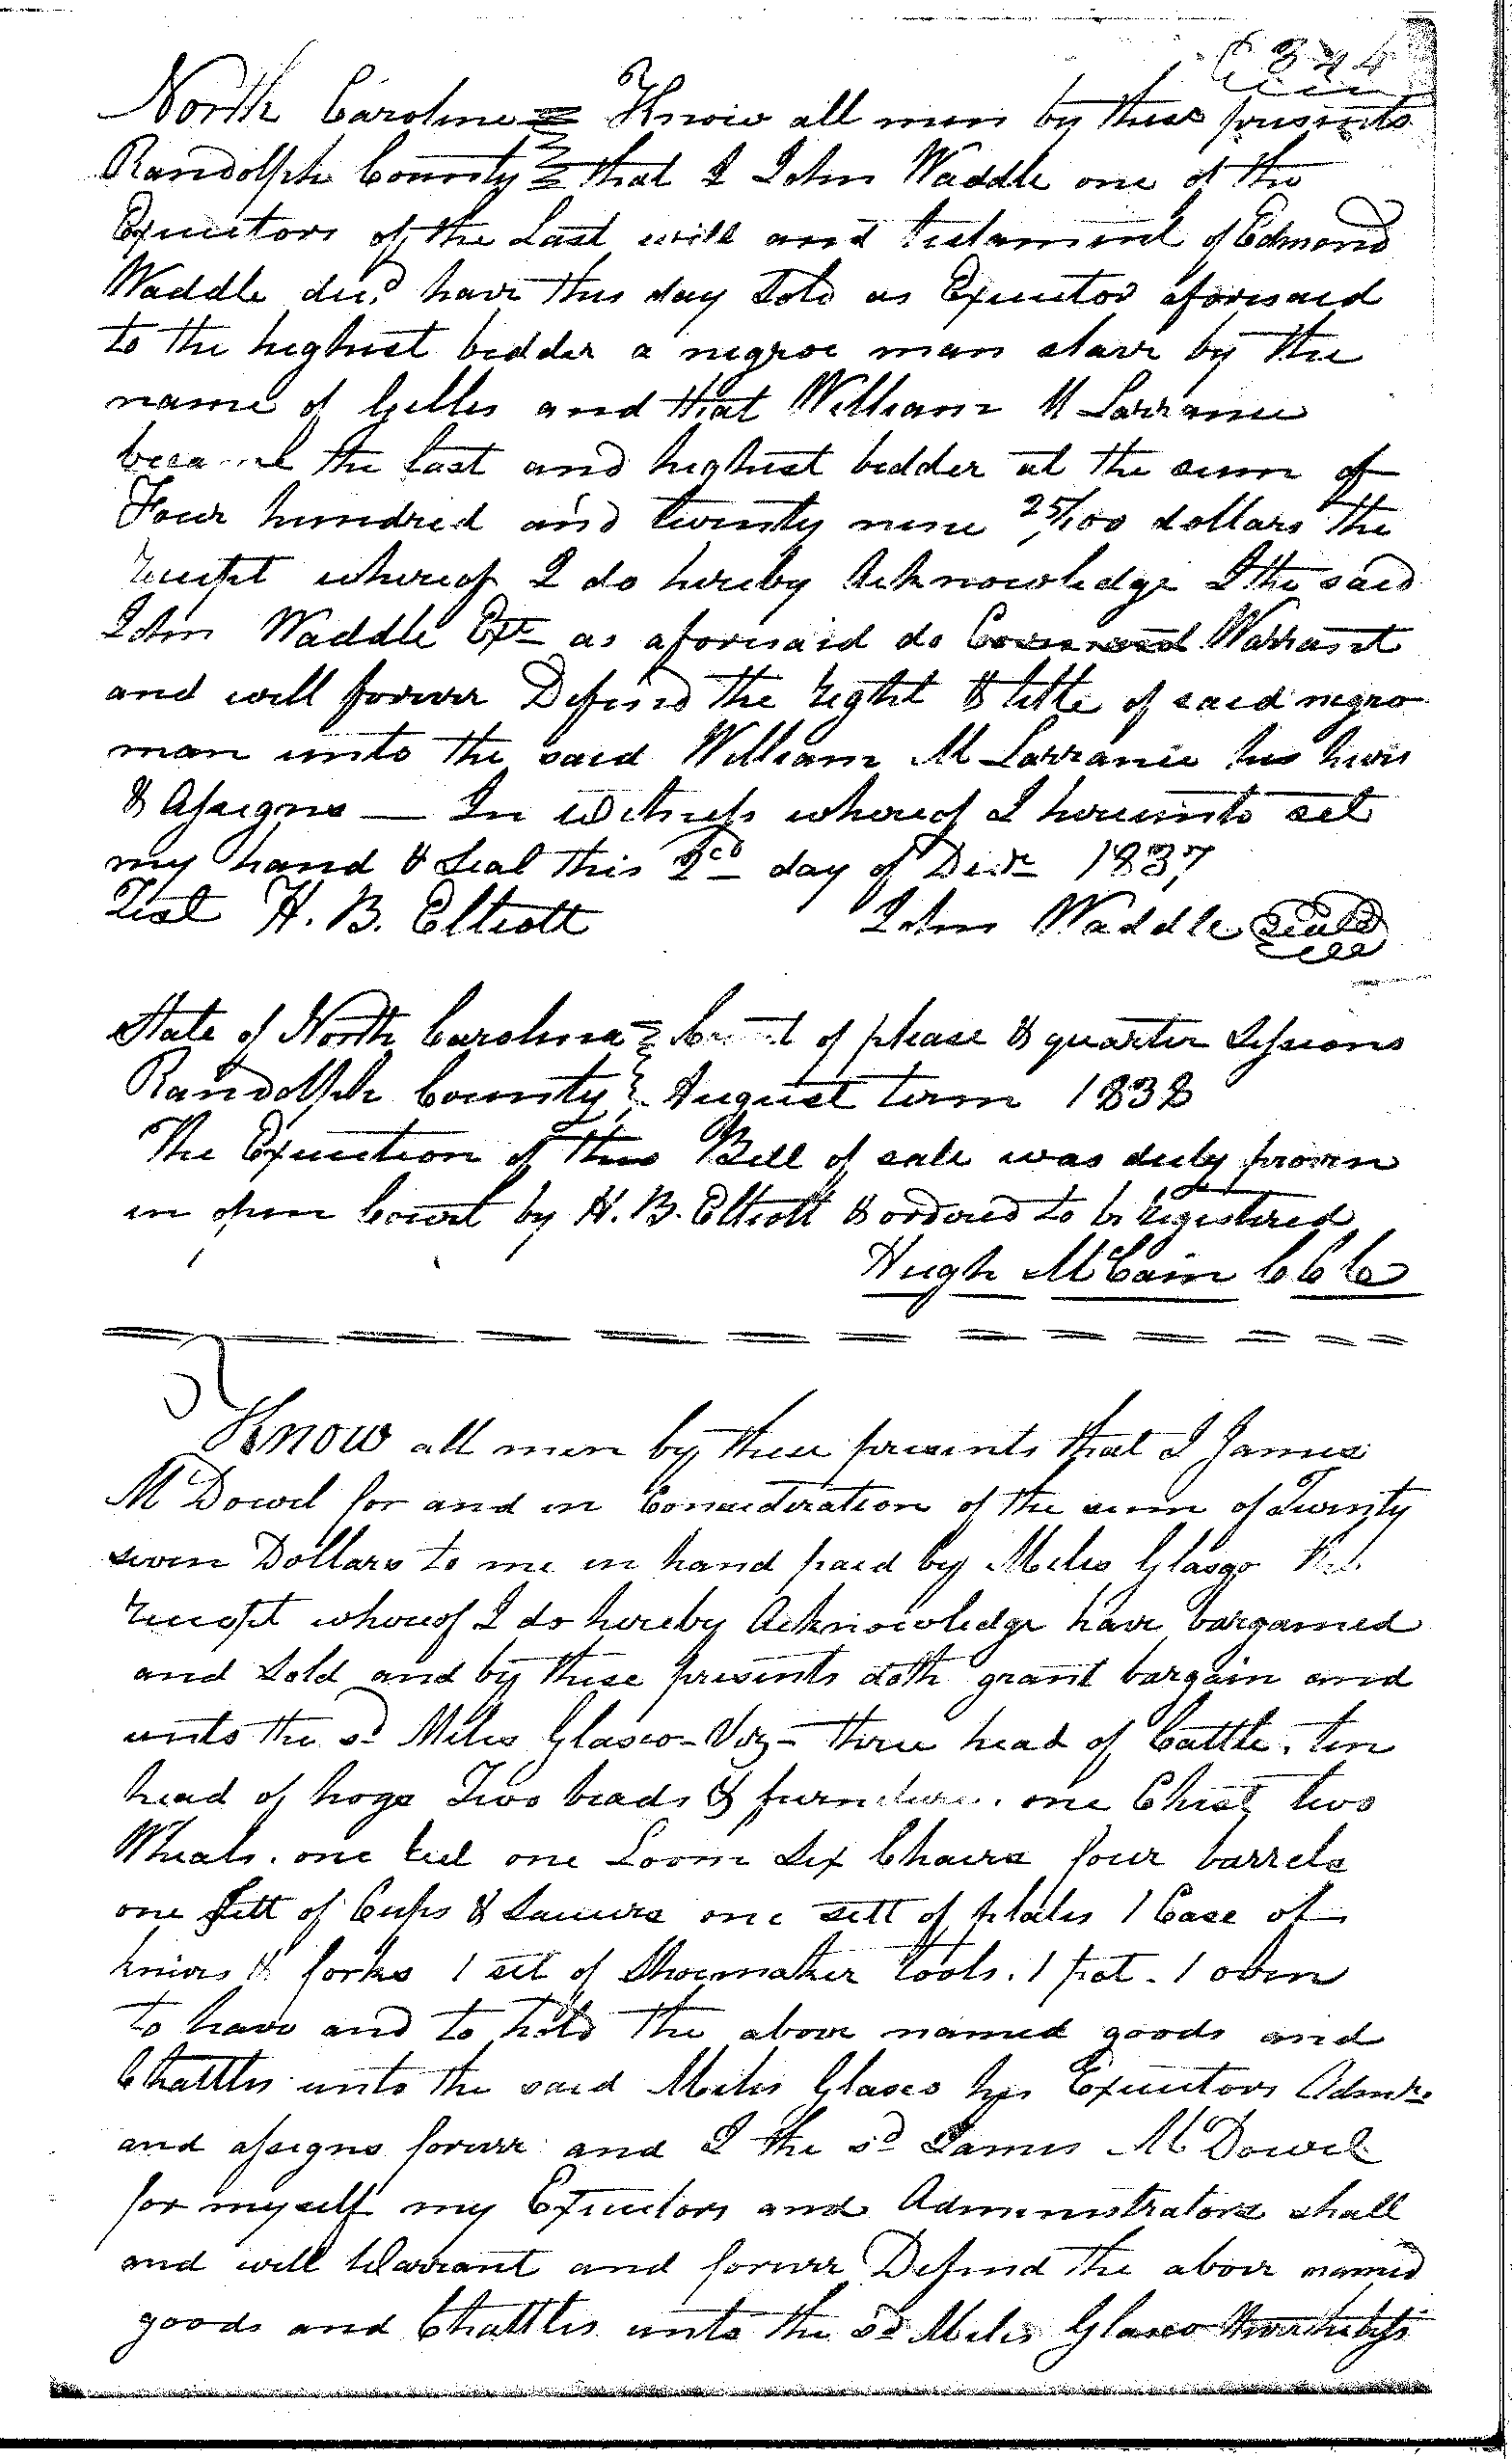 344
North Carolina Know all men by these presents
Randolph County that I John Waddle one of the
Executors of the Last will and testament of Edmond
Waddle decd have this day Sold as Executor aforesaid
to the highest bidder a negroe man slave by the
name of and that William M Larrance
became the last and highest bidder at the sum of
Four hundred and twenty nine 25/100 dollars the
receipt whereof I do hereby Acknowledge I the said
John Waddle Exr as aforesaid do Warrant
and will forever Defend the right & title of said negro
man unto the said William M Larrance his heirs
& Assigns — In Witness whereof I hereunto set
my hand & Seal this 2cd day of Decr 1837
Test H. B. Elliott John Waddle Seal
State of North Carolina Court of please & quarter Sessions
Randolph County August term 1838
The Execution of this Bill of sale was duly proven
in open Court by H. B. Elliott & ordered to be registered
Hugh McCain C C C
Know all men by these presents that I James
McDowel for and in Consideration of the sum of Twenty
seven Dollars to me in hand paid by Miles Glasgo the
receipt whereof I do hereby Acknowledge have bargained
and Sold and by these presents doth grant bargain and
unto the sd Miles Glasco - Viz - three head of Cattle. ten
head of hogs Two beads & furniture. one Chest two
Wheals. one one Loom Six Chairs four barrels
one Sett of Cups & Saucers one sett of plates 1 Case of
knives & forks 1 set of Shoemaker tools. 1 pot. 1 oven
to have and to hold the above named goods and
Chattles unto the said Miles Glasco his Executors Admrs
and assigns forever and I the sd James McDowel
for myself my Executors and Administrators shall
and will Warrant and forever Defend the above named
goods and Chattles unto the sd Miles Glasco